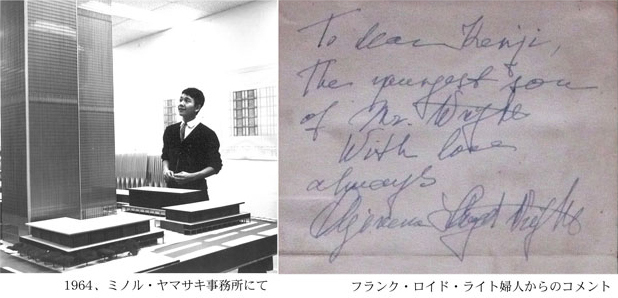 To dear Kenji,
The youngest son
of Mr. Wright
With love
always
Olgivanna Lloyd Wright
1964、ミノル・ヤマサキ事務所にて
フランク・ロイド・ライト婦人からのコメント